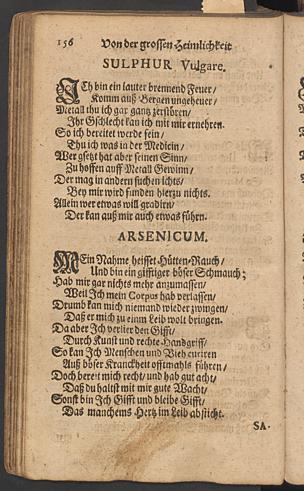 156 Von der grossen Heimlichkeit
SULPHUR Vulgare.
ICh bin ein lauter brennend Feuer/
Komm auß Bergen ungeheuer/
Metall thu ich gar gantz zerstören/
Ihr Gschlecht kan ich mit mir ernehren.
So ich bereitet werde sein/
Thu ich was in der Medicin/
Wer gsetzt hat aber seinen Sinn/
Zu hoffen auff Metall Gewinn/
Der mag in andern suchen ichts/
Bey mir wird funden hierzu nichts.
Allein wer etwas will gradirn/
Der kan auß mir auch etwas führn.
ARSENICUM.
MEin Nahme heisset Hütten-Rauch/
Und bin ein gifftiger böser Schmauch;
Hab mir gar nichts mehr anzumassen/
Weil Ich mein Corpus hab verlassen/
Drumb kan mich niemand wieder zwingen/
Daß er mich zu eim Leib wolt bringen.
Da aber Ich verlier den Gifft/
Durch Kunst und rechte Handgriff/
So kan Ich Menschen und Vieh curiren
Auß böser Kranckheit offtmahls führen/
Doch bereit mich recht/ und hab gut acht/
Daß du haltst mit mir gute Wacht/
Sonst bin Ich Gifft und bleibe Gifft/
Das manchems Hertz im Leib absticht.
SA-